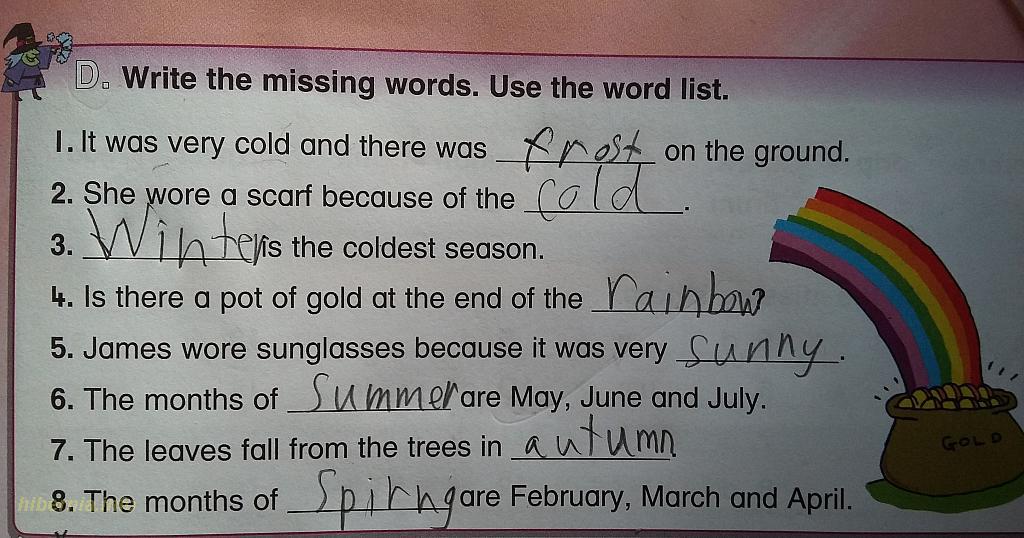 D. Write the missing words. Use the word list.
1. It was very cold and there was frost on the ground.
2. She wore a scarf because of the cold.
3. Winter is the coldest season.
4. Is there a pot of gold at the end of the rainbow?
5. James wore sunglasses because it was very sunny.
6. The months of Summer are May, June and July.
7. The leaves fall from the trees in autumn.
8. The months of Spirng are February, March and April.
GOLD